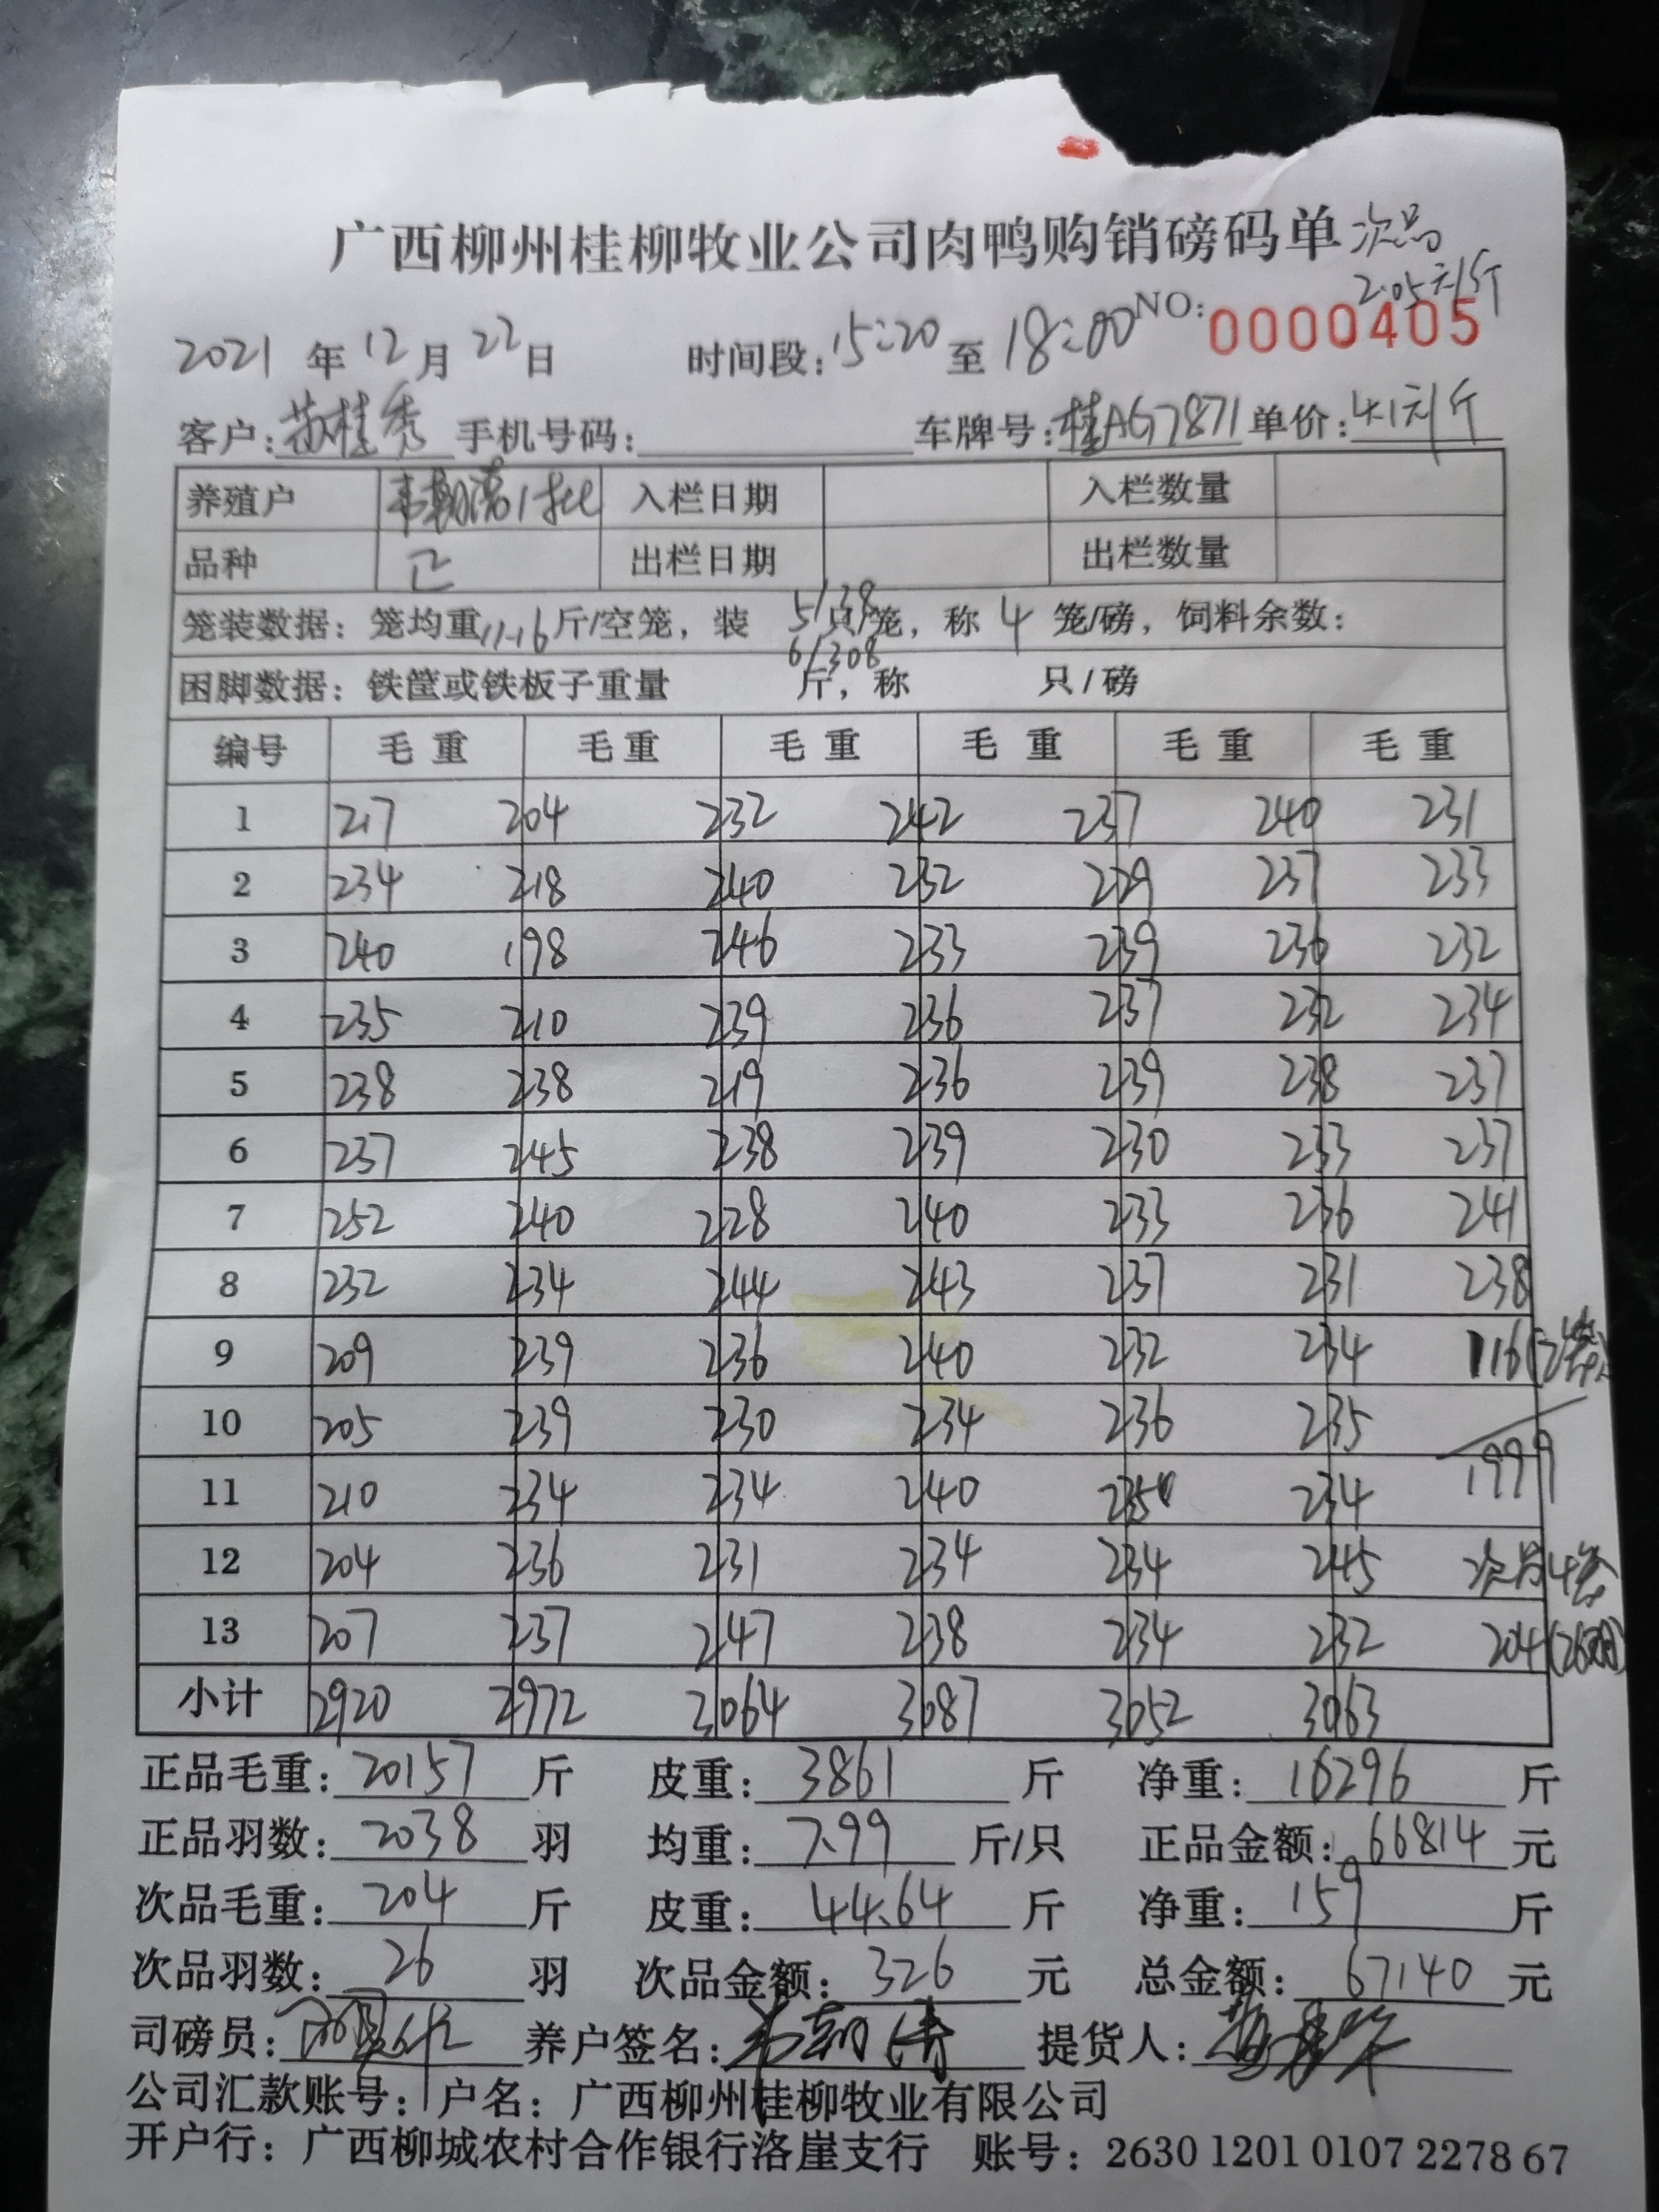 广西柳州桂柳牧业公司肉鸭购销磅码单 次品
2.05元/斤
NO: 0000405
2021 年 12 月 22 日 时间段: 15:20 至 18:00
客户: 苏桂秀 手机号码: 车牌号: 桂AG7871 单价: 4.1元/斤
养殖户 韦朝涛1批 入栏日期 入栏数量
品种 正 出栏日期 出栏数量
5/138
笼装数据: 笼均重 11.16 斤/空笼, 装 只/笼, 称 4 笼/磅, 饲料余数:
6/308
困脚数据: 铁筐或铁板子重量 斤, 称 只/磅
编号 毛重 毛重 毛重 毛重 毛重 毛重
1 217 204 232 242 237 240 231
2 234 218 240 232 229 237 233
3 240 198 246 233 239 236 232
4 235 210 239 236 237 232 234
5 238 238 219 236 239 238 237
6 237 245 238 239 230 233 237
7 252 240 228 240 233 236 241
8 232 234 244 243 237 231 238
9 209 239 236 240 232 234 116(2笼)
10 205 239 230 234 236 235
11 210 234 234 240 235 234 1999
12 204 236 231 234 234 245 次品4笼
13 207 237 247 238 234 232 204(26只)
小计 2920 2972 3064 3087 3052 3063
正品毛重: 20157 斤 皮重: 3861 斤 净重: 16296 斤
正品羽数: 2038 羽 均重: 7.99 斤/只 正品金额: 66814 元
次品毛重: 204 斤 皮重: 44.64 斤 净重: 159 斤
次品羽数: 26 羽 次品金额: 326 元 总金额: 67140 元
司磅员: 养户签名: 韦朝涛 提货人:
公司汇款账号: 户名: 广西柳州桂柳牧业有限公司
开户行: 广西柳城农村合作银行洛崖支行 账号: 2630 1201 0107 2278 67